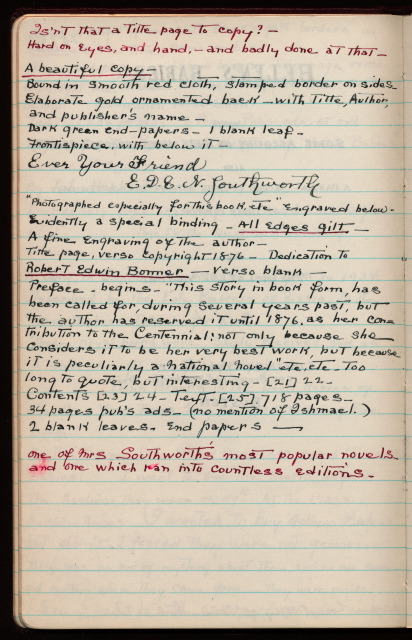 Isn't that a Title page to copy? —
Hard on eyes, and hand, — and badly done at that —
A beautiful copy —
Bound in smooth red cloth, stamped border on sides.
Elaborate gold ornamented back — with Title, Author,
and publisher's name —
Dark green end-papers — 1 blank leaf —
Frontispiece, with below it —
Ever Your Friend
E.D.E.N. Southworth
"Photographed especially for this book, etc" Engraved below.
Evidently a special binding — All Edges gilt —
A fine Engraving of the author —
Title page, verso Copyright 1876 — Dedication to
Robert Edwin Bonner — Verso blank —
Preface - begins - "This story in book form, has
been called for, during several years past, but
the author has reserved it until 1876, as her con=
tribution to the Centennial; not only because she
considers it to be her very best work, but because
it is peculiarly a national novel" etc. etc. Too
long to quote, but interesting - [21] 22 -
Contents [23] 24 - Text - [25] 718 pages -
34 pages pub's ads - (no mention of Ishmael.)
2 blank leaves. End papers —
one of Mrs Southworth's most popular novels
and one which ran into countless editions -